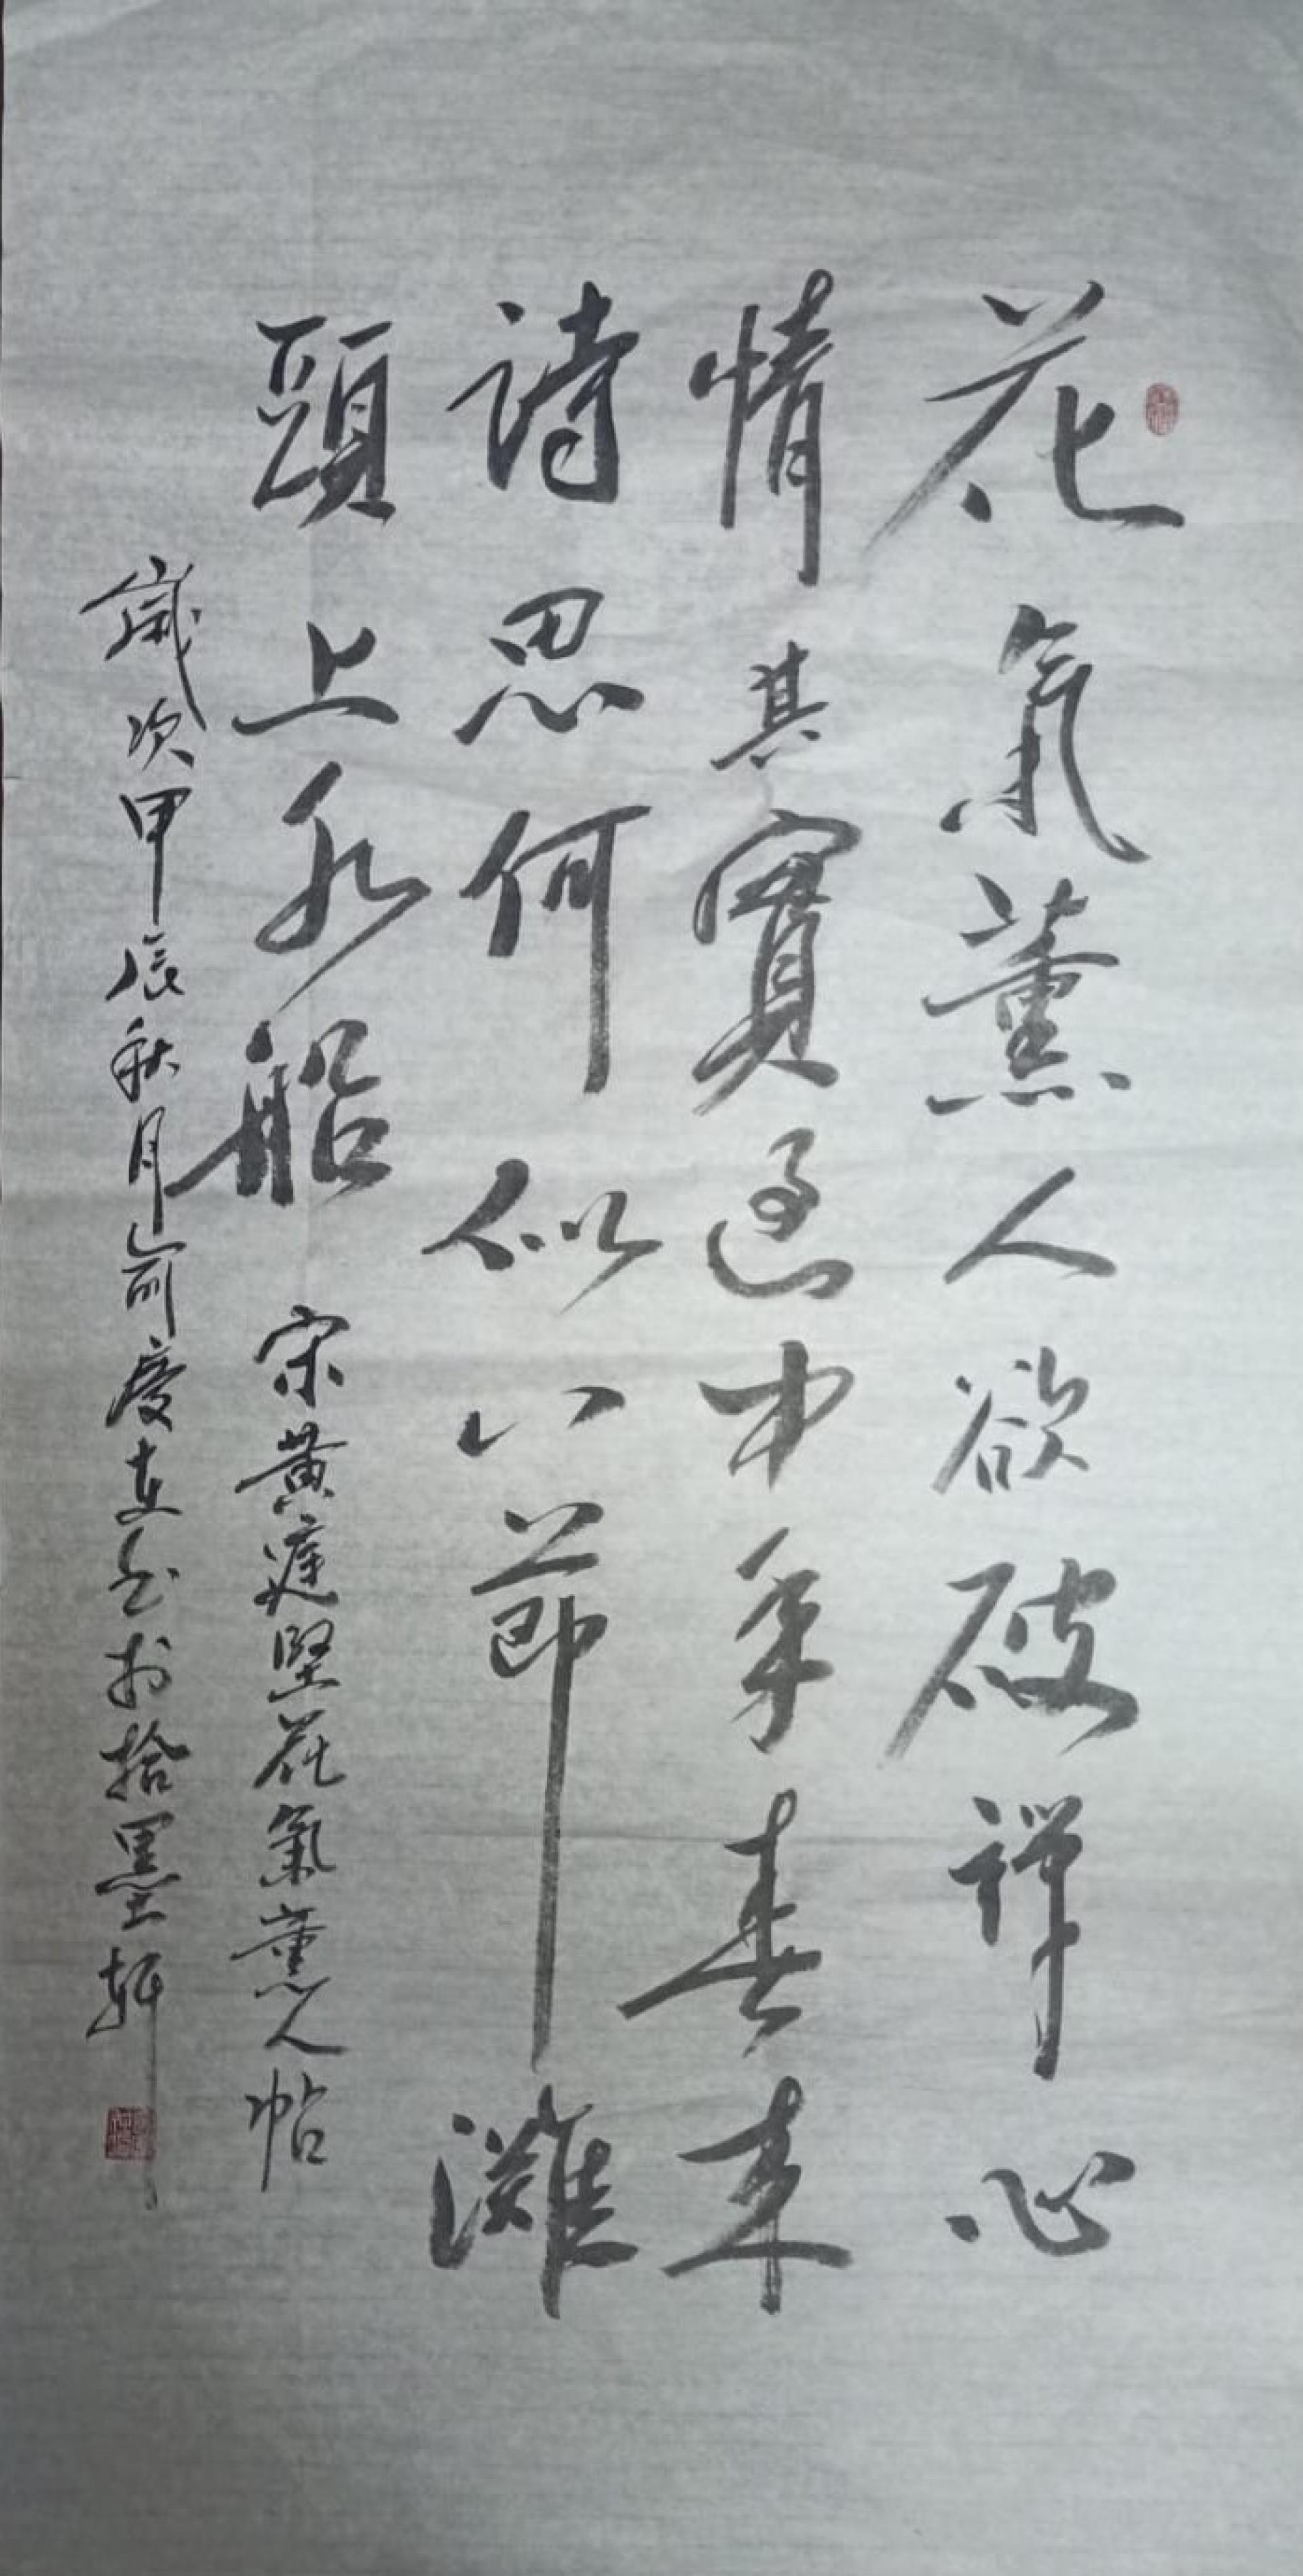 花氣薰人欲破禪心
情其實過中年春來
詩思何似八節灘
頭上水船
宋黃庭堅花氣薰人帖
歲次甲辰秋月慶書於拾墨軒